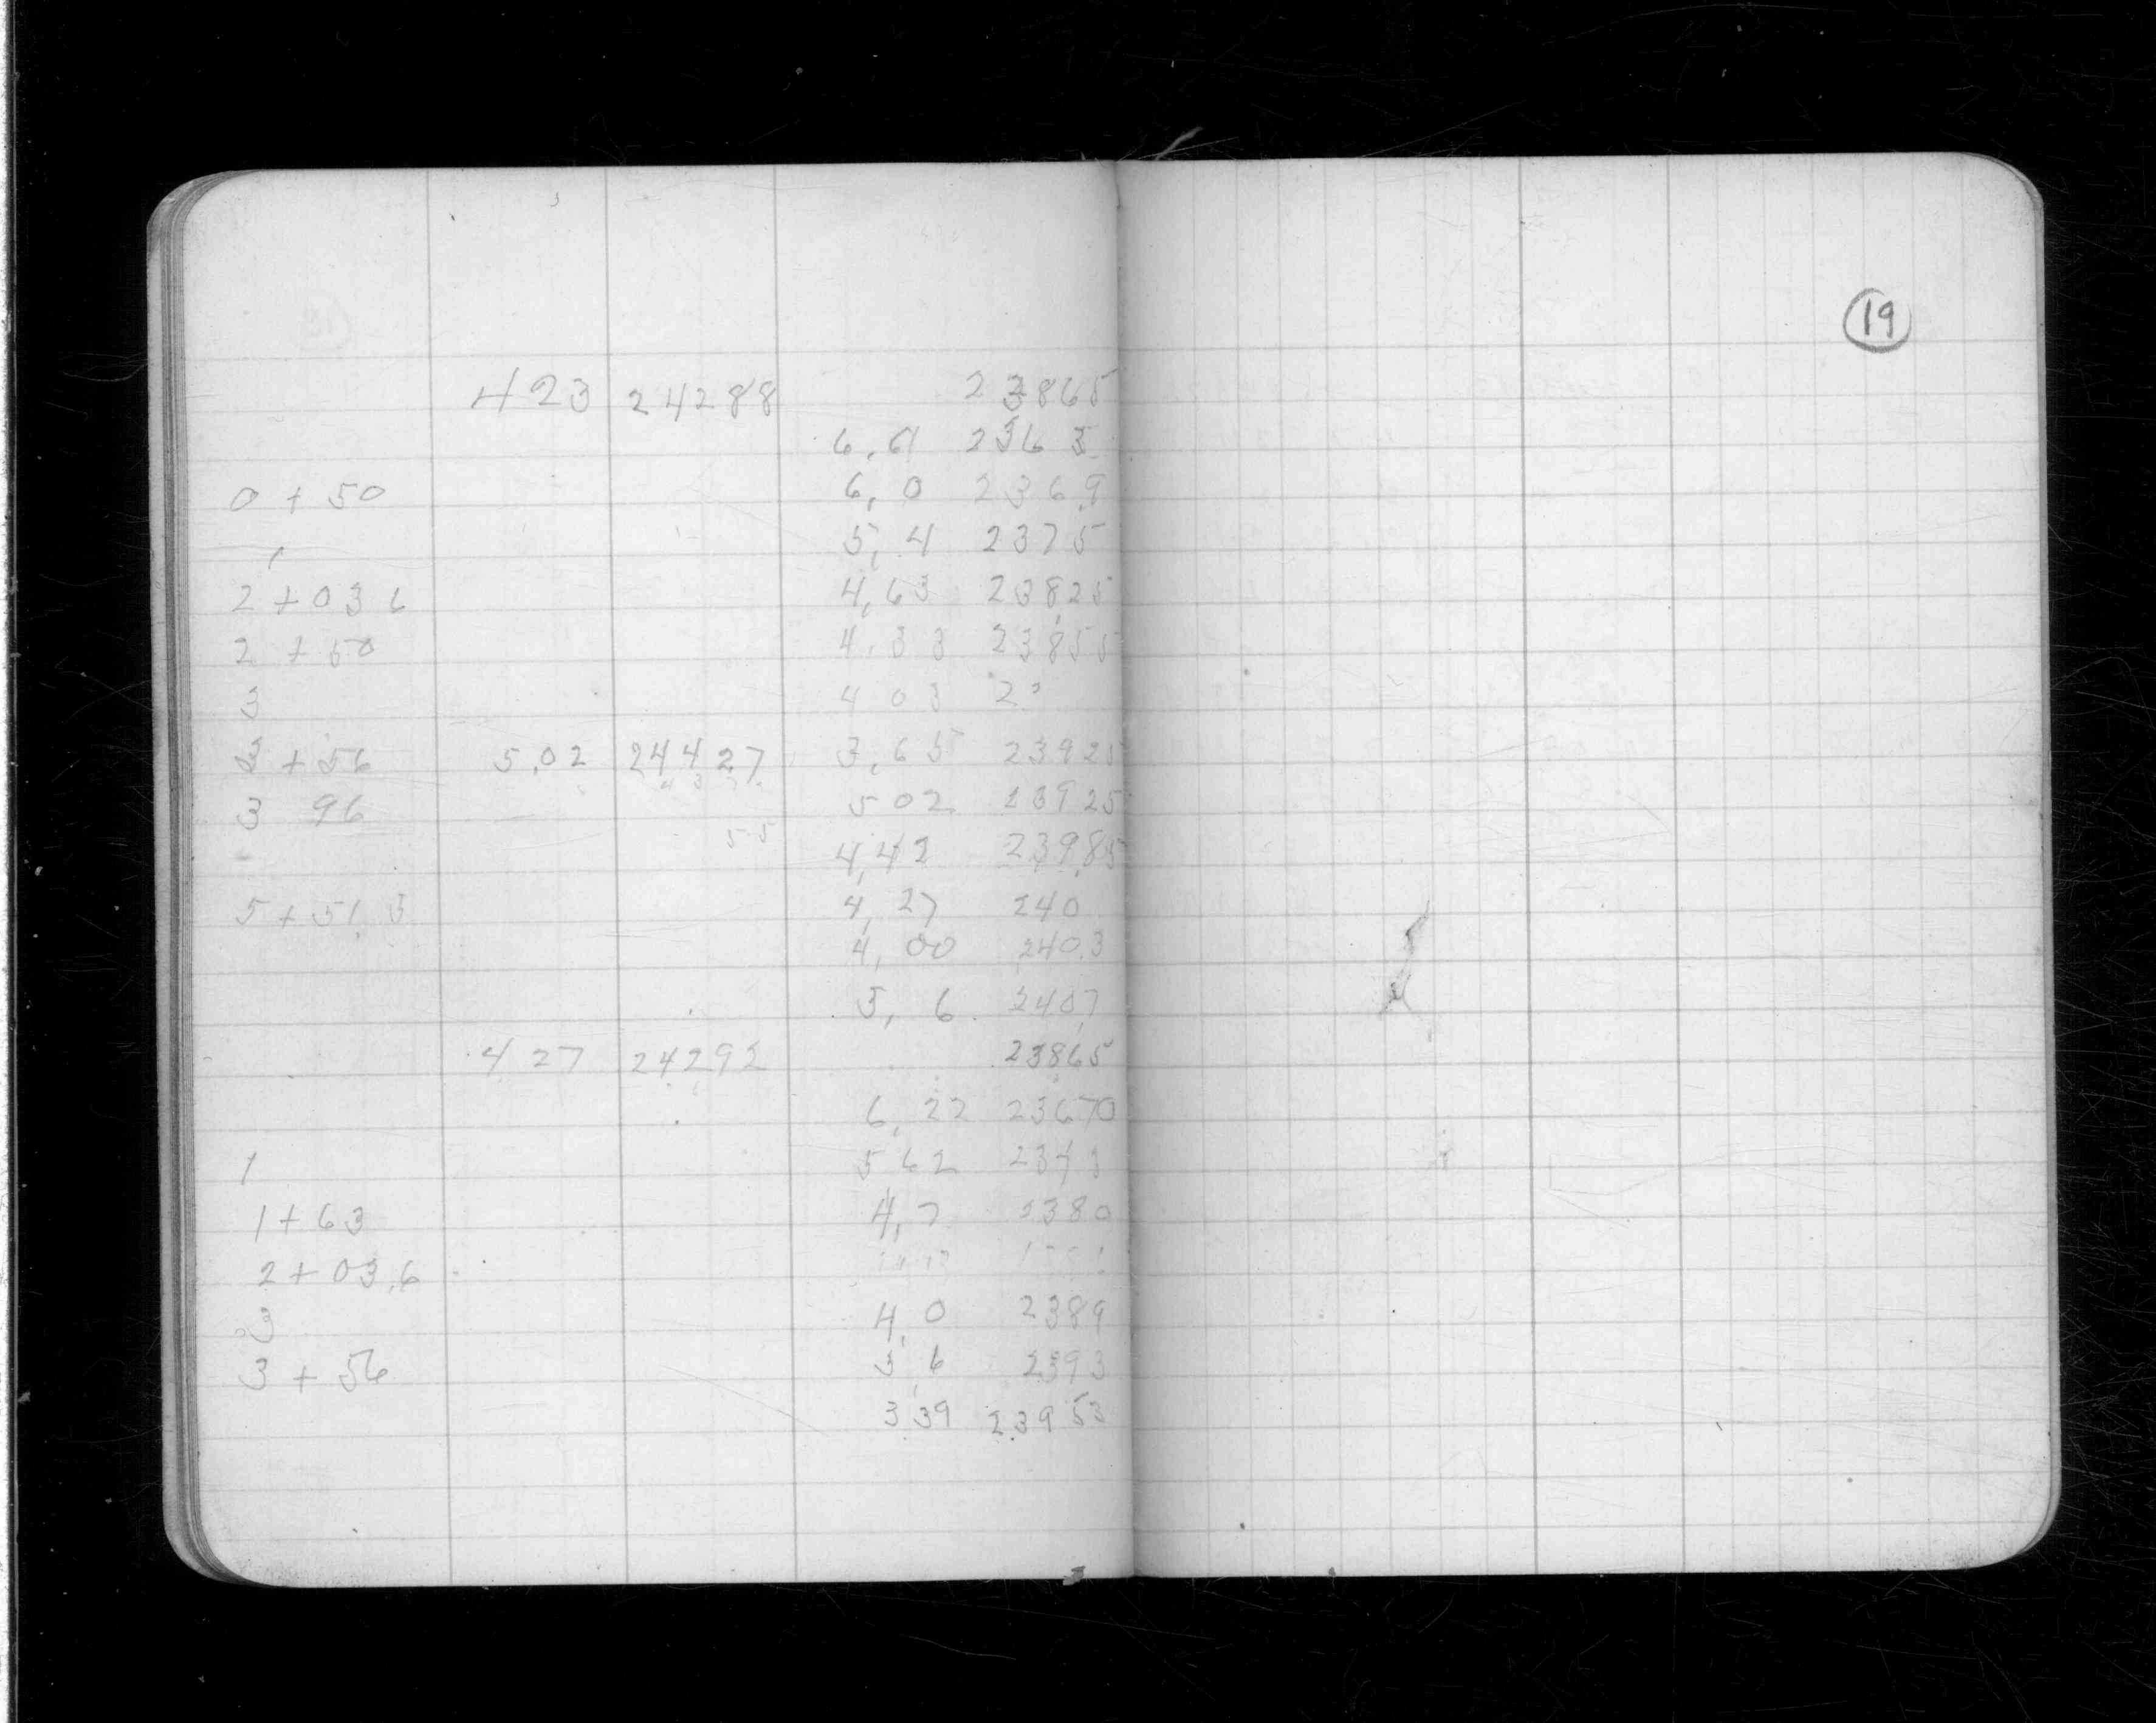 19
423 24288 23865
6.61 2363
0 + 50 6.0 2369
1 5.4 2375
2 + 036 4.63 23825
2 + 50 4.33 23855
3 4 03
3 + 56 5.02 24427 3.65 23925
3 96 502 23925
55 4.42 23985
5 + 51.3 4.27 240
4.00 240.3
3.6 2407
427 24292 23865
6.22 23670
1 562 2373
1 + 63 4.7 2380
2 + 03.6
3 4.0 2389
3 + 56 3.6 2393
3.39 23953